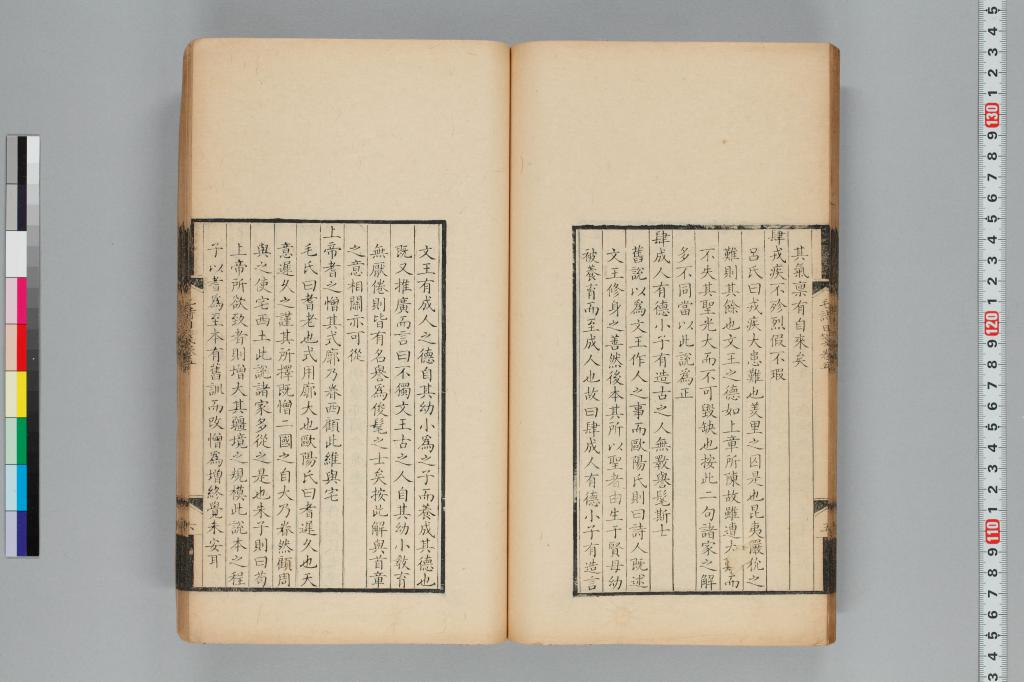 其氣禀有自來矣
肆戎疾不殄烈假不瑕
呂氏曰戎疾大患難也羑里之囚是也昆夷嚴狁之
難則其餘也文王之德如上章所陳故雖遭大難而
不失其聖光大而不可毀缺也按此二句諸家之解
多不同當以此說為正
肆成人有德小子有造古之人無斁譽髦斯士
舊說以為文王作人之事而歐陽氏則曰詩人既述
文王修身之善然後本其所以聖者由生于賢母幼
被養育而至成人也故曰肆成人有德小子有造言
文王有成人之德自其幼小為之子而養成其德也
既又推廣而言曰不獨文王古之人自其幼小教育
無厭倦則皆有名譽為俊髦之士矣按此解與首章
之意相關亦可從
上帝耆之憎其式廓乃眷西顧此維與宅
毛氏曰耆老也式用廓大也歐陽氏曰耆遲久也天
意遲久之謹其所擇既憎二國之自大乃眷然顧周
與之使宅西土此說諸家多從之是也朱子則曰苟
上帝所欲致者則增大其疆境之規模此說本之程
子以耆為至本有舊訓而改憎為增終覺未安耳
130
120
110